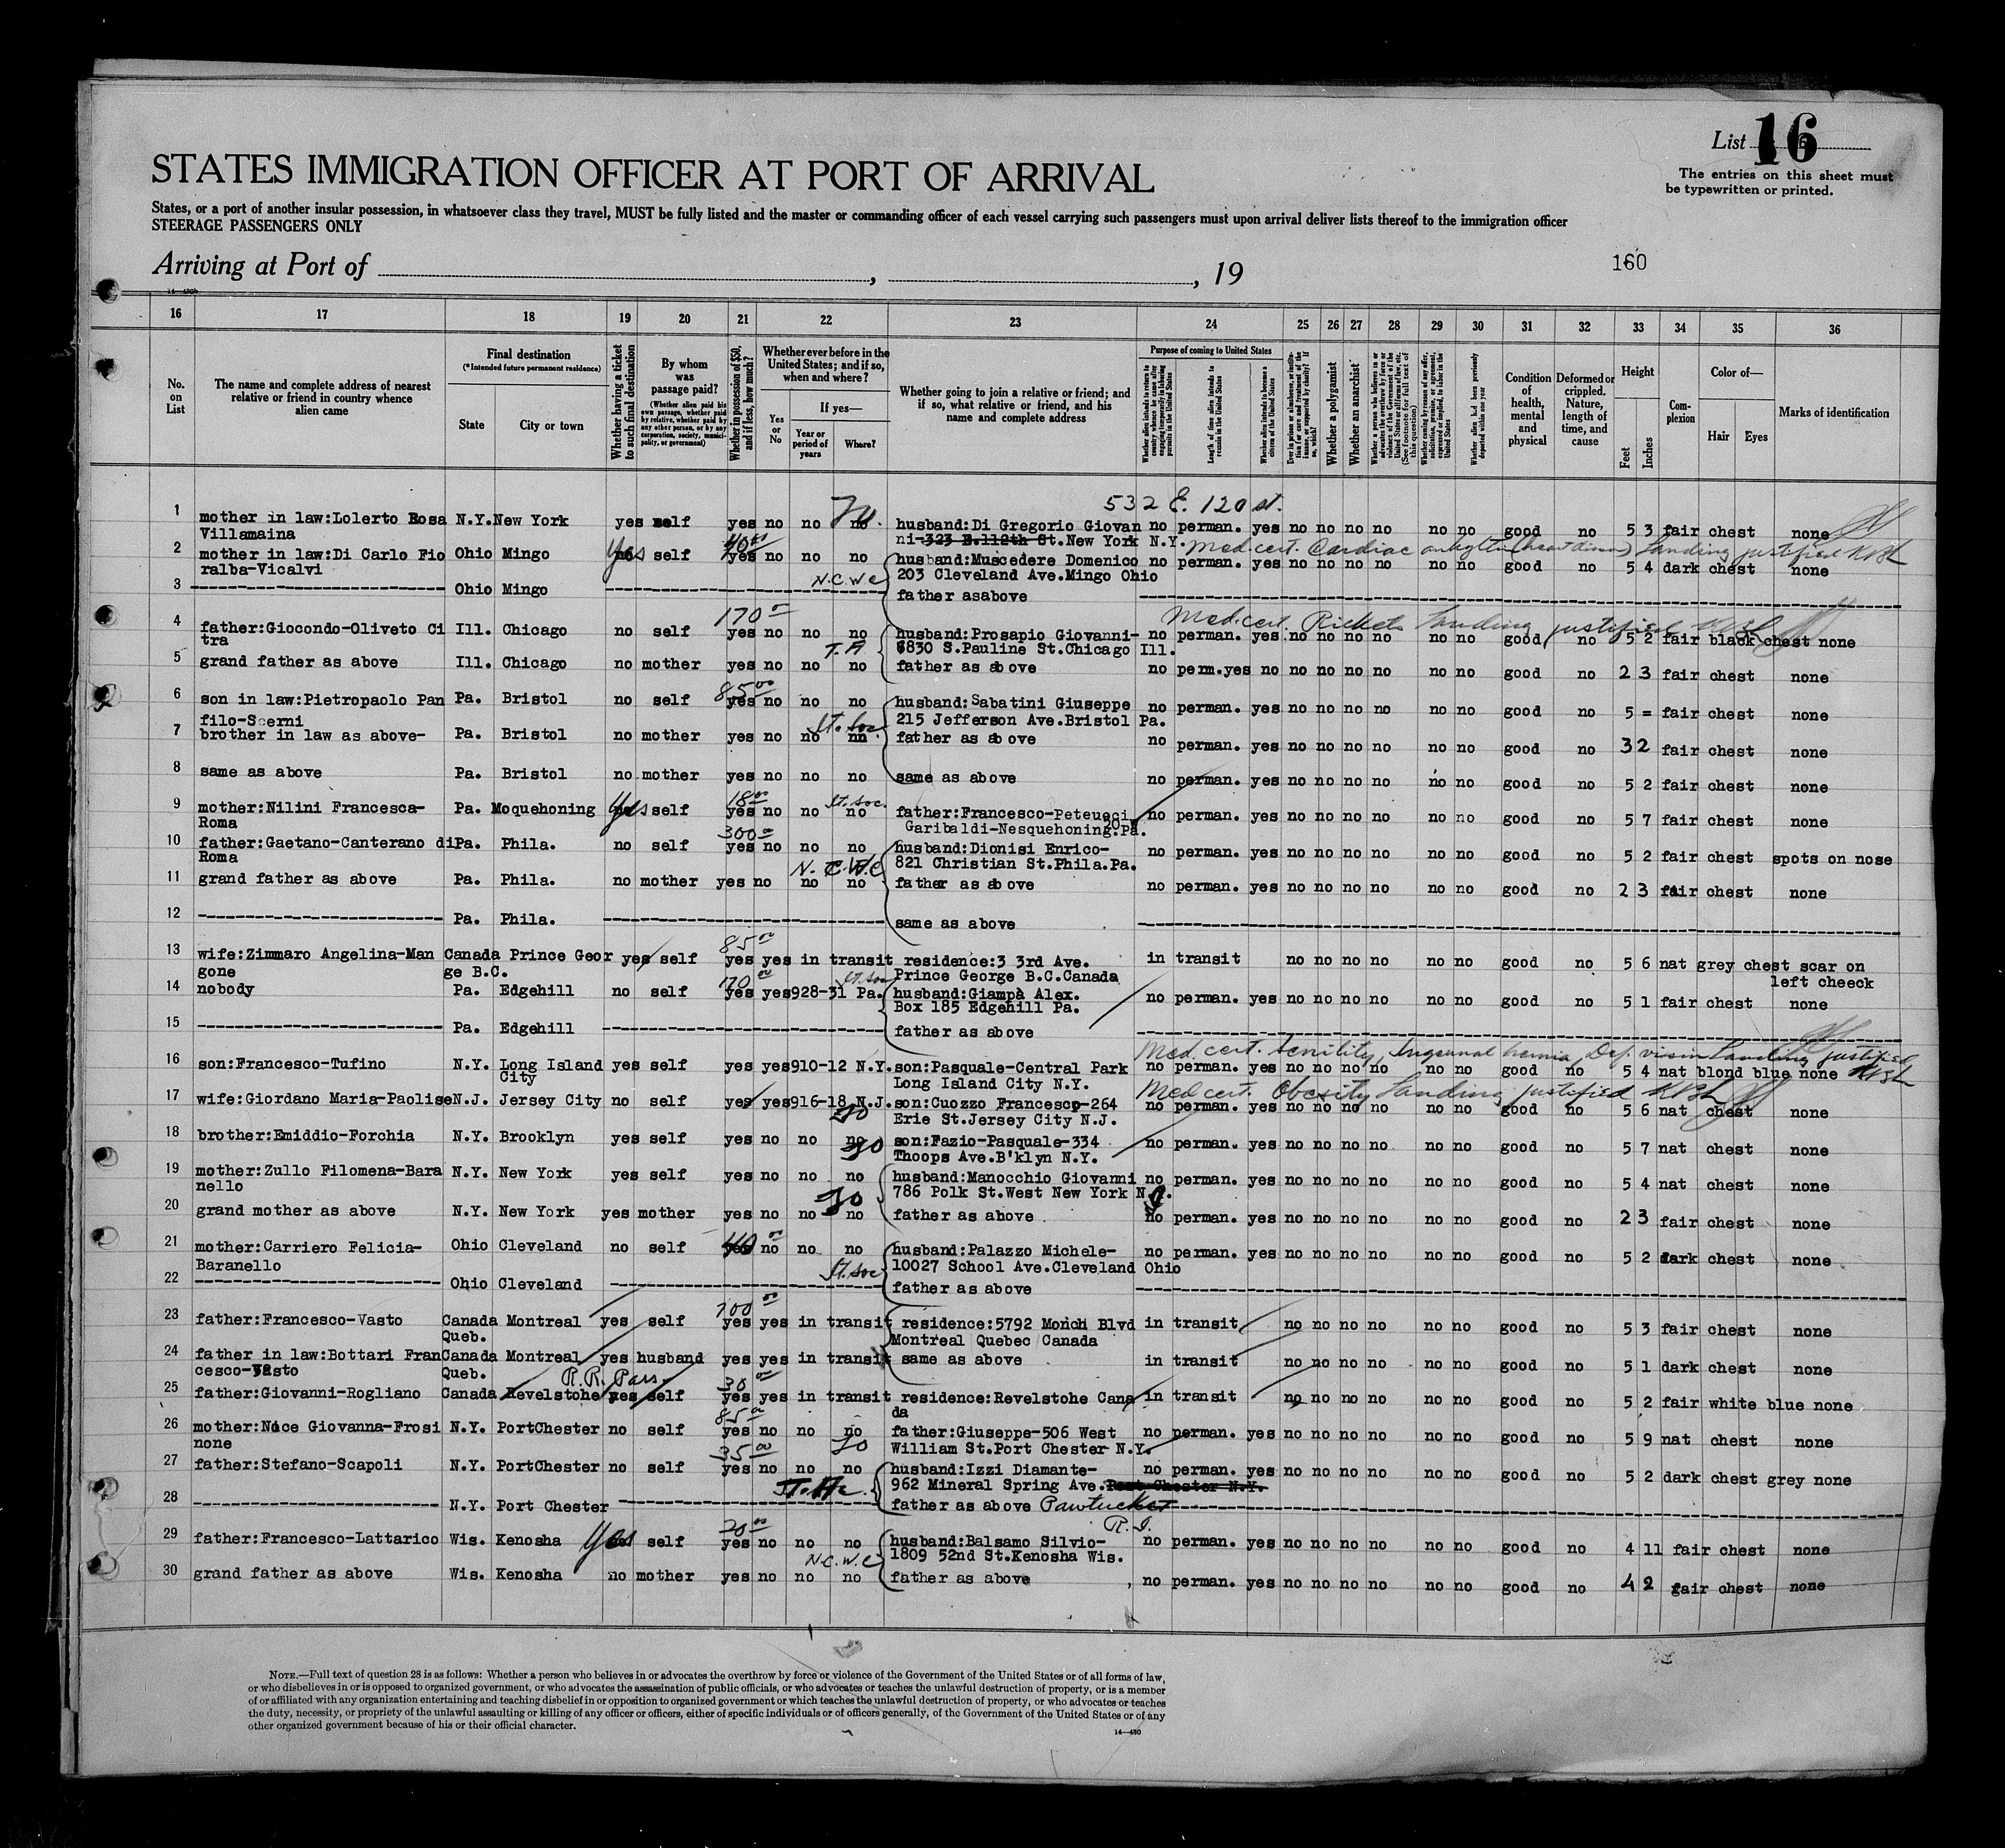 List 16
The entries on this sheet must
be typewritten or printed.
STATES IMMIGRATION OFFICER AT PORT OF ARRIVAL
States, or a port of another insular possession, in whatsoever class they travel, MUST be fully listed and the master or commanding officer of each vessel carrying such passengers must upon arrival deliver lists thereof to the immigration officer
STEERAGE PASSENGERS ONLY
Arriving at Port of , , 19
160
16 17 18 19 20 21 22 23 24 25 26 27 28 29 30 31 32 33 34 35 36
No. on List
The name and complete address of nearest relative or friend in country whence alien came
Final destination
(*Intended future permanent residence)
State
City or town
Whether having a ticket to such final destination
By whom was passage paid?
(Whether alien paid his own passage, whether paid by relative, whether paid by any other person, or by any corporation, society, municipality, or government)
Whether in possession of $50, and if less, how much?
Whether ever before in the United States; and if so, when and where?
Yes or No
If yes—
Year or period of years
Where?
Whether going to join a relative or friend; and if so, what relative or friend, and his name and complete address
Purpose of coming to United States
Length of time alien intends to remain in the United States
Whether alien intends to become a citizen of the United States
Whether a polygamist
Whether an anarchist
Condition of health, mental and physical
Deformed or crippled. Nature, length of time, and cause
Height
Feet
Inches
Complexion
Color of—
Hair
Eyes
Marks of identification
532 E. 120 st.
1 mother in law:Lolerto Rosa N.Y. New York yes self yes no no no husband:Di Gregorio Giovan no perman. yes no no no no no no good no 5 3 fair chest none
Villamaina ni-323 E.112th St.New York N.Y.
Med. cert. Cardiac landing justified
2 mother in law:Di Carlo Fio Ohio Mingo yes self yes no no no husband:Muscedere Domenico no perman. yes no no no no no no good no 5 4 dark chest none
ralba-Vicalvi 203 Cleveland Ave.Mingo Ohio
N.C.W.C
3 Ohio Mingo father asabove
170 Med. cert. Rickets landing justified
4 father:Giocondo-Oliveto Ci Ill. Chicago no self yes no no no husband:Prosapio Giovanni- no perman. yes no no no no no no good no 5 2 fair black chest none
tra 6830 S.Pauline St.Chicago Ill.
5 grand father as above Ill. Chicago no mother yes no no no father as above no perm.yes no no no no no no good no 2 3 fair chest none
85
6 son in law:Pietropaolo Pan Pa. Bristol no self yes no no no husband:Sabatini Giuseppe no perman. yes no no no no no no good no 5 = fair chest none
filo-Scerni 215 Jefferson Ave.Bristol Pa.
St. Soc.
7 brother in law as above- Pa. Bristol no mother yes no no nn father as above no perman. yes no no no no no no good no 3 2 fair chest none
8 same as above Pa. Bristol no mother yes no no no same as above no perman. yes no no no no no no good no 5 2 fair chest none
18 St. Soc.
9 mother:Nilini Francesca- Pa. Moquehoning yes self yes no no no father:Francesco-Peteucci no perman. yes no no no no no no good no 5 7 fair chest none
Roma Garibaldi-Nesquehoning.Pa.
300
10 father:Gaetano-Canterano di Pa. Phila. no self yes no no no husband:Dionisi Enrico- no perman. yes no no no no no no good no 5 2 fair chest spots on nose
Roma 821 Christian St.Phila.Pa.
N.C.W.C
11 grand father as above Pa. Phila. no mother yes no no no father as above no perman. yes no no no no no no good no 2 3 fair chest none
12 Pa. Phila. same as above
85
13 wife:Zimmaro Angelina-Man Canada Prince Geor yes self yes yes in transit residence:3 3rd Ave. in transit no no no no no no good no 5 6 nat grey chest scar on
gone ge B.C. Prince George B.C.Canada left cheeck
170 St. Soc
14 nobody Pa. Edgehill no self yes yes928-31 Pa. husband:Giampà Alex. no perman. yes no no no no no no good no 5 1 fair chest none
Box 185 Edgehill Pa.
15 Pa. Edgehill father as above
Med. cert. Senility, Inguinal hernia, Def. vision landing justified
16 son:Francesco-Tufino N.Y. Long Island yes self yes yes910-12 N.Y. son:Pasquale-Central Park no perman. yes no no no no no no good no 5 4 nat blond blue none
City Long Island City N.Y.
Med cert. Obesity landing justified
17 wife:Giordano Maria-Paolise N.J. Jersey City no self yes yes916-18 N.J. son:Cuozzo Francesco-264 no perman. yes no no no no no no good no 5 6 nat chest none
Erie St.Jersey City N.J.
18 brother:Emiddio-Forchia N.Y. Brooklyn yes self yes no no no son:Fazio-Pasquale-334 no perman. yes no no no no no no good no 5 7 nat chest none
Thoops Ave.B'klyn N.Y.
19 mother:Zullo Filomena-Bara N.Y. New York yes self yes no no no husband:Manocchio Giovanni no perman. yes no no no no no no good no 5 4 nat chest none
nello 786 Polk St.West New York N.J.
20 grand mother as above N.Y. New York yes mother yes no no no father as above no perman. yes no no no no no no good no 2 3 fair chest none
21 mother:Carriero Felicia- Ohio Cleveland no self 40 no no no husband:Palazzo Michele- no perman. yes no no no no no no good no 5 2 dark chest none
Baranello 10027 School Ave.Cleveland Ohio
St. Soc
22 Ohio Cleveland father as above
23 father:Francesco-Vasto Canada Montreal yes self yes yes in transit residence:5792 Monch Blvd in transit no no no no no no good no 5 3 fair chest none
Queb. Montreal Quebec Canada
24 father in law:Bottari Fran Canada Montreal yes husband yes yes in transit same as above in transit no no no no no no good no 5 1 dark chest none
cesco-Vasto Queb.
R.R. Pass 30
25 father:Giovanni-Rogliano Canada Revelstohe yes self yes yes in transit residence:Revelstohe Cana in transit no no no no no no good no 5 2 fair white blue none
da
85
26 mother:Noce Giovanna-Frosi N.Y. PortChester no self yes no no no father:Giuseppe-506 West no perman. yes no no no no no no good no 5 9 nat chest none
none William St.Port Chester N.Y.
35
27 father:Stefano-Scapoli N.Y. PortChester no self yes no no no husband:Izzi Diamante- no perman. yes no no no no no no good no 5 2 dark chest grey none
962 Mineral Spring Ave.Port Chester N.Y.
28 N.Y. Port Chester father as above Pawtucket
R.I.
29 father:Francesco-Lattarico Wis. Kenosha yes self yes no no no husband:Balsamo Silvio- no perman. yes no no no no no no good no 4 11 fair chest none
N.C.W.C 1809 52nd St.Kenosha Wis.
30 grand father as above Wis. Kenosha no mother yes no no no father as above no perman. yes no no no no no no good no 4 2 fair chest none
NOTE.—Full text of question 28 is as follows: Whether a person who believes in or advocates the overthrow by force or violence of the Government of the United States or of all forms of law,
or who disbelieves in or is opposed to organized government, or who advocates the assassination of public officials, or who advocates or teaches the unlawful destruction of property, or is a member
of or affiliated with any organization entertaining and teaching disbelief in or opposition to organized government or which teaches the unlawful destruction of property, or who advocates or teaches
the duty, necessity, or propriety of the unlawful assaulting or killing of any officer or officers, either of specific individuals or of officers generally, of the Government of the United States or of any
other organized government because of his or their official character.
14—430